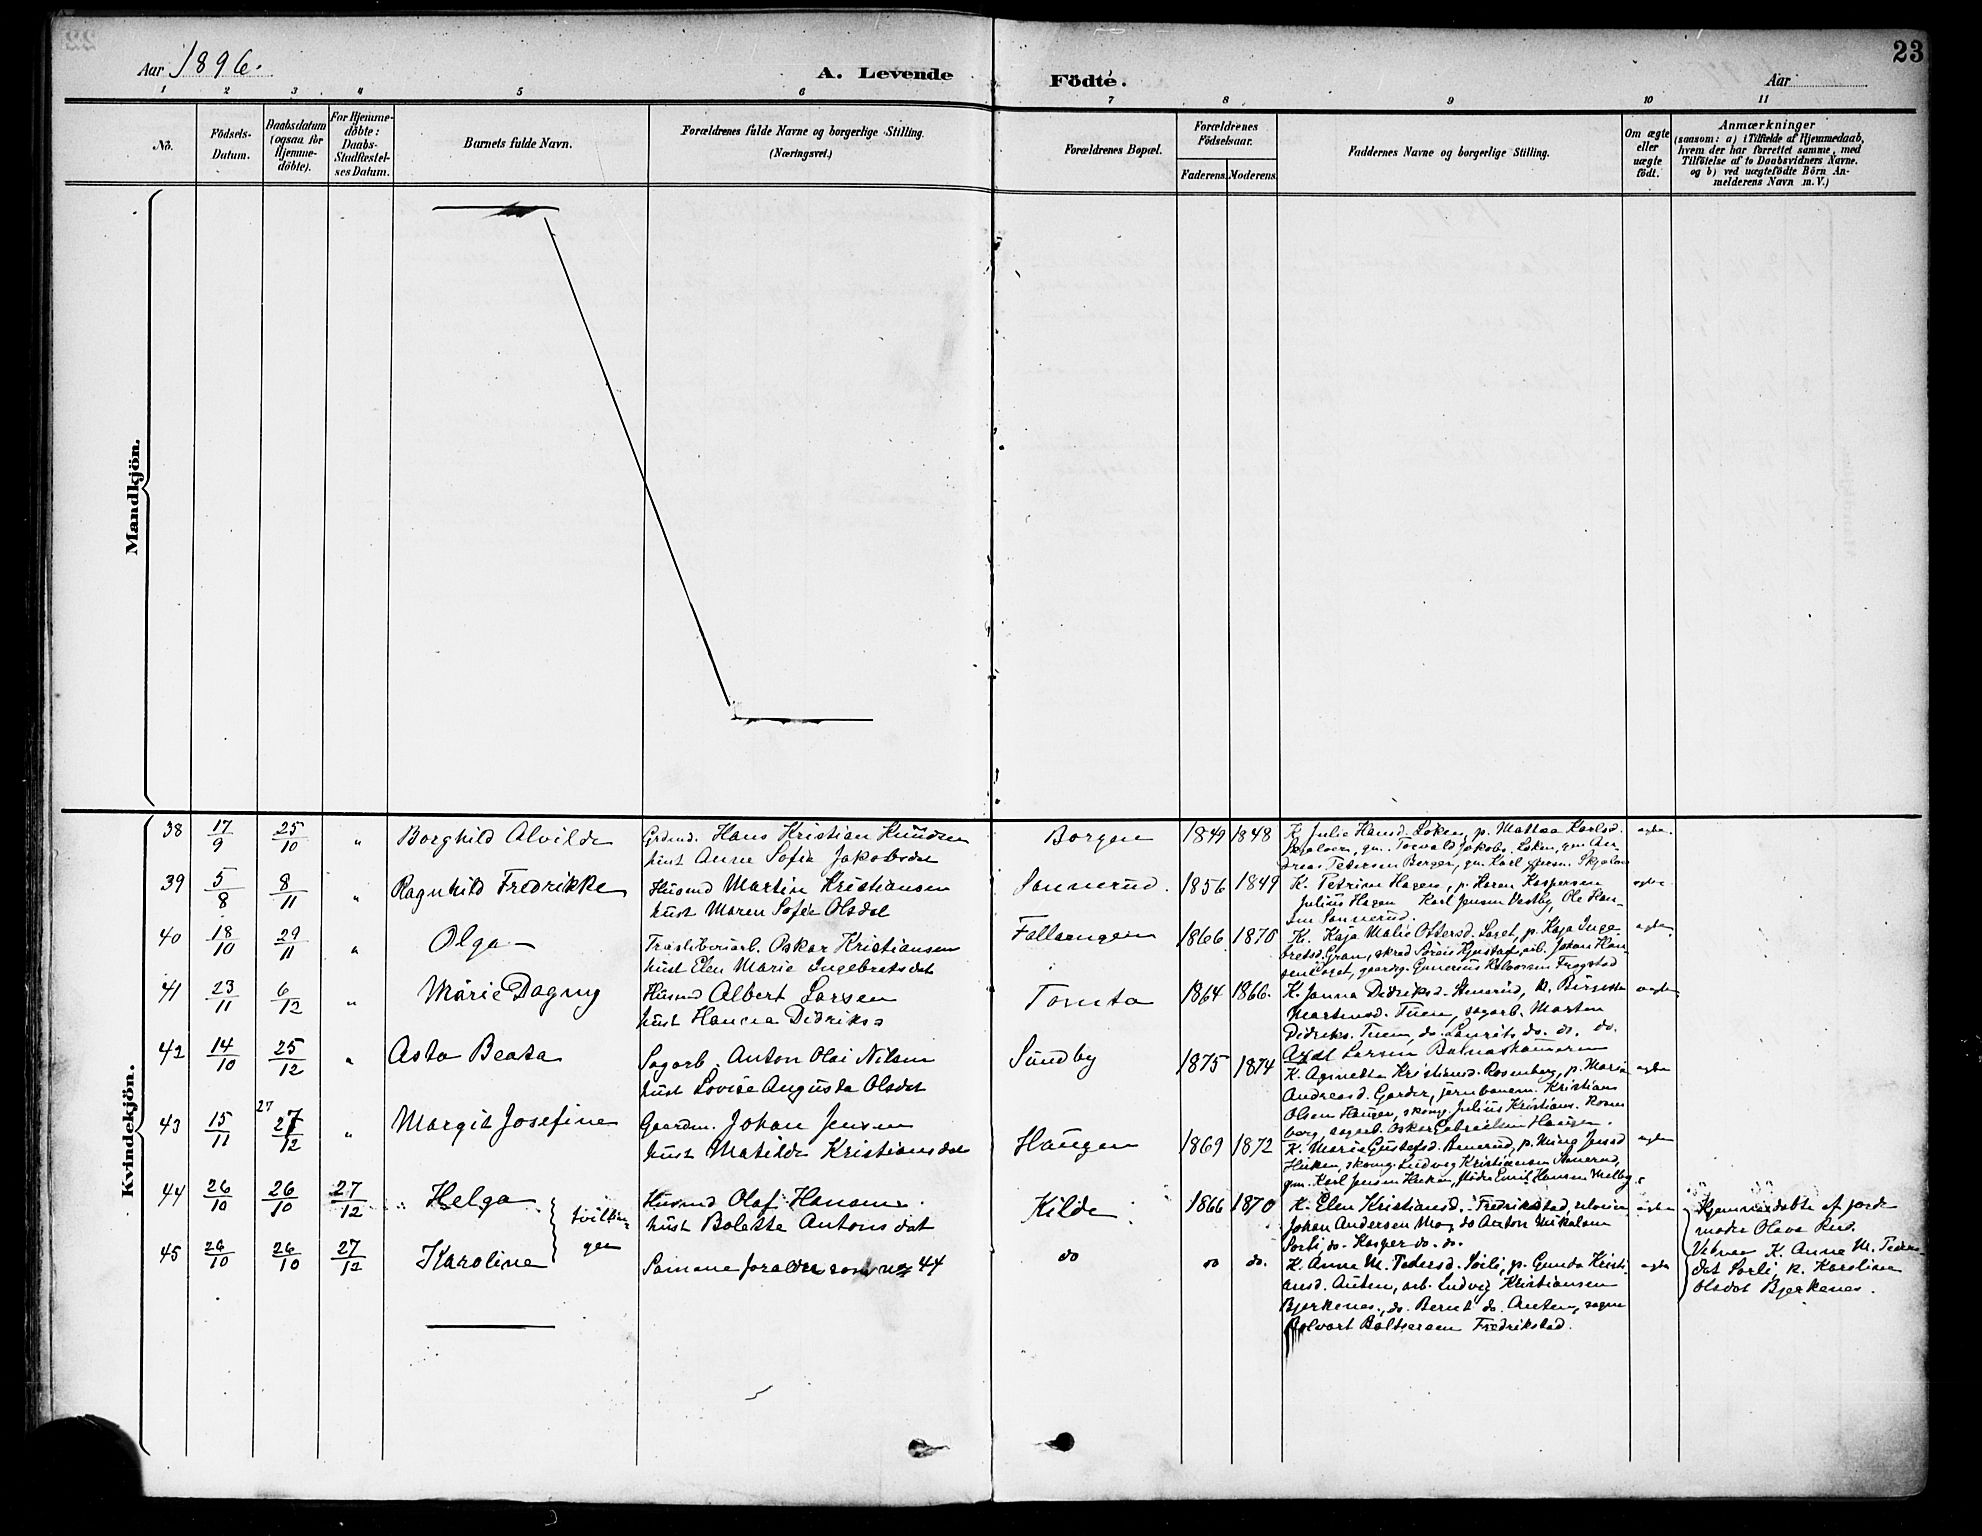 Aar 1896.
A. Levende
Födte.
Aar
23
1 2 3 4 5 6 7 8 9 10 11
No.
Födsels-
Datum.
Daabsdatum
(ogsaa for
Hjemme-
döbte).
For Hjemme-
döbte:
Daabs-
Stadfæstel-
ses Datum.
Barnets fulde Navn.
Forældrenes fulde Navne og borgerlige Stilling.
(Næringsvei.)
Forældrenes Bopæl.
Forældrenes
Födselsaar.
Faderens. Moderens.
Faddernes Navne og borgerlige Stilling.
Om ægte
eller
uægte
födt.
Anmærkninger
(saasom: a) i Tilfælde af Hjemmedaab,
hvem der har forrettet samme, med
Tilföielse af to Daabsvidners Navne.
og b) ved uægtefödte Börn An-
melderens Navn m. V.)
Mandkjön.
Kvindekjön.
38 17/9 25/10 " Borghild Alvilde
Grdmd. Hans Kristian Knudsen
hust Anne Sofie Jakobsdat
Borgen 1849 1848
K. Julie Hansd. Löken, p. Mattea Karlsd.
gm. Torvald Jakobs. Löken, gm. An-
dreas Petersen Borgen, gm. Karl
ægte
39 5/8 8/11 " Ragnhild Fredrikke
Husmd Martin Kristiansen
hust Maren Sofie Olsdat
Sannerud. 1856 1849
K. Petrine Hagen, p. Karen Kaspersen
Julius Hagen Karl Jensen Vestby, Ole Han-
sen Sannerud.
ægte
40 18/10 29/11 " Olga
Træsliberiarb. Oskar Kristiansen
hust Elen Marie Ingebretsdat
Fallaengen 1866 1870
K. Kaja Malie Ottersd. p. Kaja Inge-
bretsd. Gran, arb. Johan Han-
sen gaardg. Gunerius Halvorsen Frogstad
ægte
41 23/11 6/12 " Marie Dagny
Husmd Albert Larsen
hust Hanna Didriks
Tomta 1864 1866.
K. Janna Didriksd. Stenerud, K. Birgitte
Martinsd. Tuen, sagarb. Morten
Didriks. Tuen, do. Laurits do. do. do.
Axel Larsen
ægte
42 14/10 25/12 " Asta Beata
Sagarb. Anton Olai Nilsen
hust Lovise Augusta Olsdat
Sundby 1875 1874
K. Agnethe Kristiansd. Rosenberg, p. Marie
Andreasd. Garder, jernbanem. Kristian
Olsen Haugen, skomg. Julius Kristians. Rosen-
berg, sagarb. Oskar Gabrielsen Haugen.
ægte
43 15/11 27/12 27 " Margit Josefine
Gaardm. Johan Jensen
hust Matilde Kristiansdat
Haugen 1869 1872
K. Marie Gustafsd. p. Mina Jensd
skomg. Ludvig Kristiansen
gm. Karl Jensen Emil Hansen Melby.
ægte
44 26/10 26/10 27/12 Helga
Husmd Olaf Hansen
hust Bolette Antonsdat
tvillin-
ger
Kilde. 1866 1870
K. Elen Kristiansd. Fredrikstad,
Johan Andersen do Anton Nikolsen
Sorli, do. Kasper do. do.
ægte
Hjemmedöbte af jorde
moder Olava Rud.
Vidner K. Anne M. Peders-
dat Sorli, K. Karoline
Olsdat Bjerkenes.
45 26/10 26/10 27/12 Karoline
Samme foraldre som no 44
do do do.
K. Anne M. Pedersd. Sörli, p. Gunda Kristi-
ansd. Auten, arb. Ludvig Kristiansen
Bjerkenes, do. Bernt do. Auten,
Baltsersen Fredrikstad.
ægte